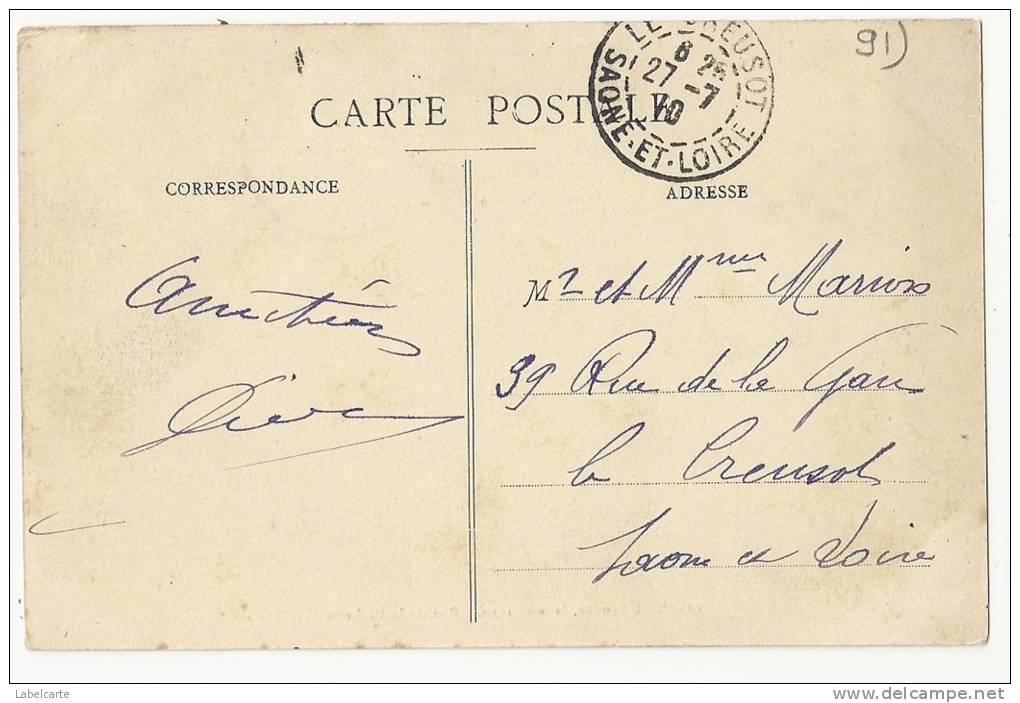 91)
LE CREUSOT
6 25
27 -7
10
SAONE-ET-LOIRE
CARTE POSTALE
CORRESPONDANCE
ADRESSE
Amitiés
Mr et Mme Marion
39 Rue de la Gare
le Creusot
Saone et Loire
Labelcarte
www.delcampe.net